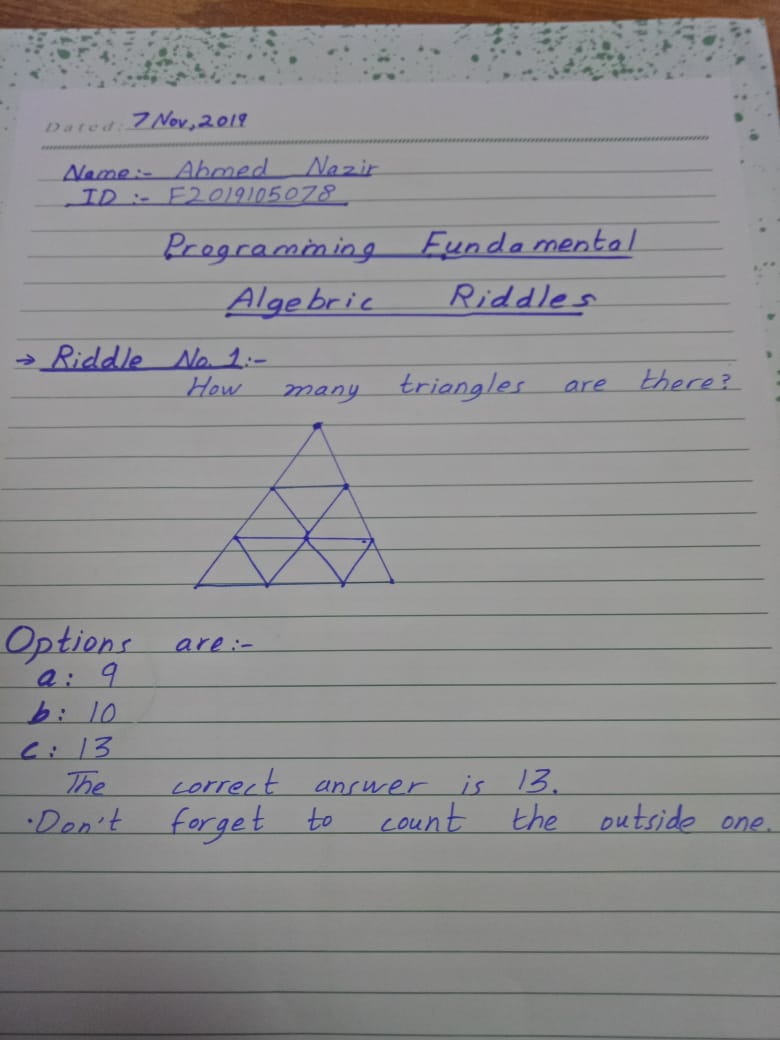 Dated: 7 Nov, 2019
Name:- Ahmed Nazir
ID :- F2019105078
Programming Fundamental
Algebric Riddles
→ Riddle No. 1:-
How many triangles are there?
Options are:-
a: 9
b: 10
c: 13
The correct answer is 13.
·Don't forget to count the outside one.